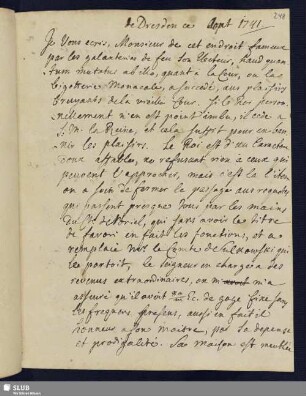 de Dresden ce Aout 1741
Je Vous ecris, Monsieur de cet endroit fameux
par les galanteries de feu son Electeur, haud quan
tum mutatus ab illo, quant a la Cour, ou la
bigotterie Monacale, a succedé, aux plaisirs
bruyants de la vieille Cour. Si le Roi person
nellement n'en est point imbu, il cede a
la Reine, et cela suffit pour en ban
nir les plaisirs. Le Roi est d'un Caractere
affable, ne refusant rien a ceux qui
peuvent l'approcher, mais c'est la
on a soin de fermer le passage aux
qui passent presque tous par les mains
du Cte de Brühl, qui sans avoir le titre
de favori en fait les fonctions, et a
remplacé le Comte de Sulkowski qui
le portoit, le Seigneur en
revenus extraordinaires, on m'avoit m'a
asseuré qu'il avoit de gage fixe sans
les frequens presens, aussi en fait il
honneur a son maitre, par sa depense
et prodigalité. Sa maison est meublée
SLUB